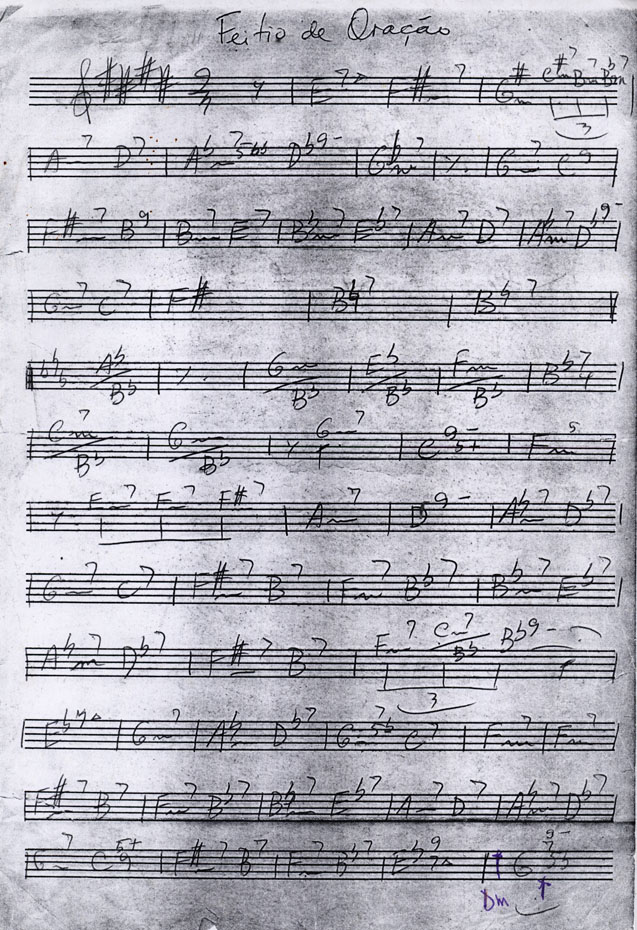 Feitio de Oração
E7 F#m7 G#m C#m7 Bm7 Bbm7
Am7 D7 Abm7 5-b5 Db9- Gbm7 ٪ Gm7 C9
F#m7 B9 Bm7 E7 Bbm7 Eb7 Am7 D7 Abm7 Db9-
Gm7 C7 F# Bb7 Bb7
Ab/Bb ٪ Gm/Bb Eb/Bb Fm/Bb Bb7 4
Cm7/Bb Gm/Bb Gm7 C9- 5+ Fm5
Em7 Fm7 F#7 Am7 D9- Abm7 Db7
Gm7 C7 F#m7 B7 Fm7 Bb7 Bbm7 Eb7
Abm7 Db7 F#7 B7 Fm7 Cm7/Bb Bb9-
3
Eb7 Gm7 Abm7 Db7 Gm7 5b C7 Fm7 Fm7
F#m7 B7 Fm7 Bb7 Bbm7 Eb7 Am7 D7 Abm7 Db7
Gm7 C5+ 9 F#m7 B7 Fm7 Bb7 Eb9 7 G
Dm